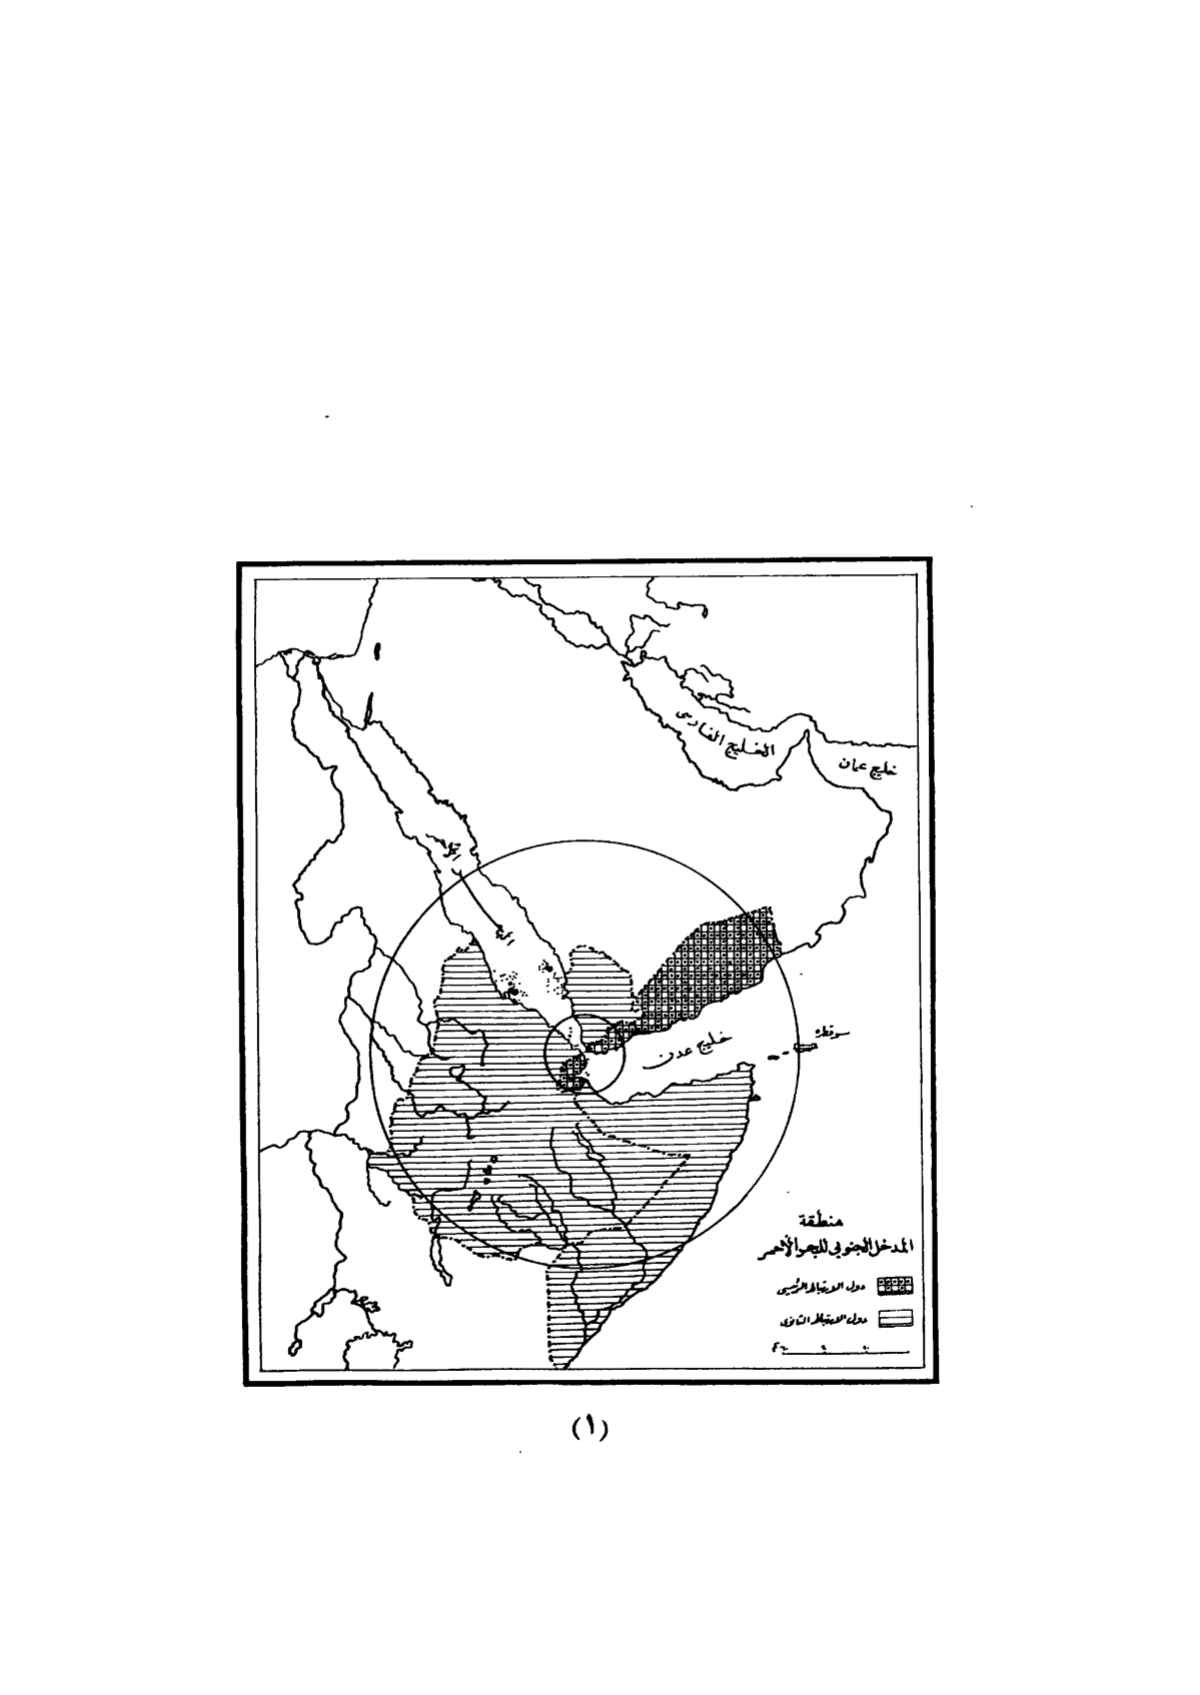 الخليج الفارسى
خليج عمان
خليج عدن
سوقطره
منطقة
المدخل الجنوبى للبحر الأحمر
دول الارتباط الرئيسى
دول الارتباط الثانوى
(١)